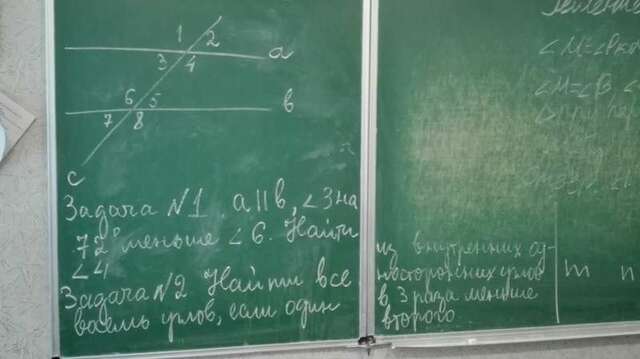 1 2
3 4
a
6 5
в
7 8
c
Задача №1. a||в, ∠3 на
72° меньше ∠6. Найти
∠4
Задача №2 Найти все
восемь углов, если один
из внутренних од-
носторонних углов
в 3 раза меньше
второго.
m n
∠M=∠P
∠M=∠B